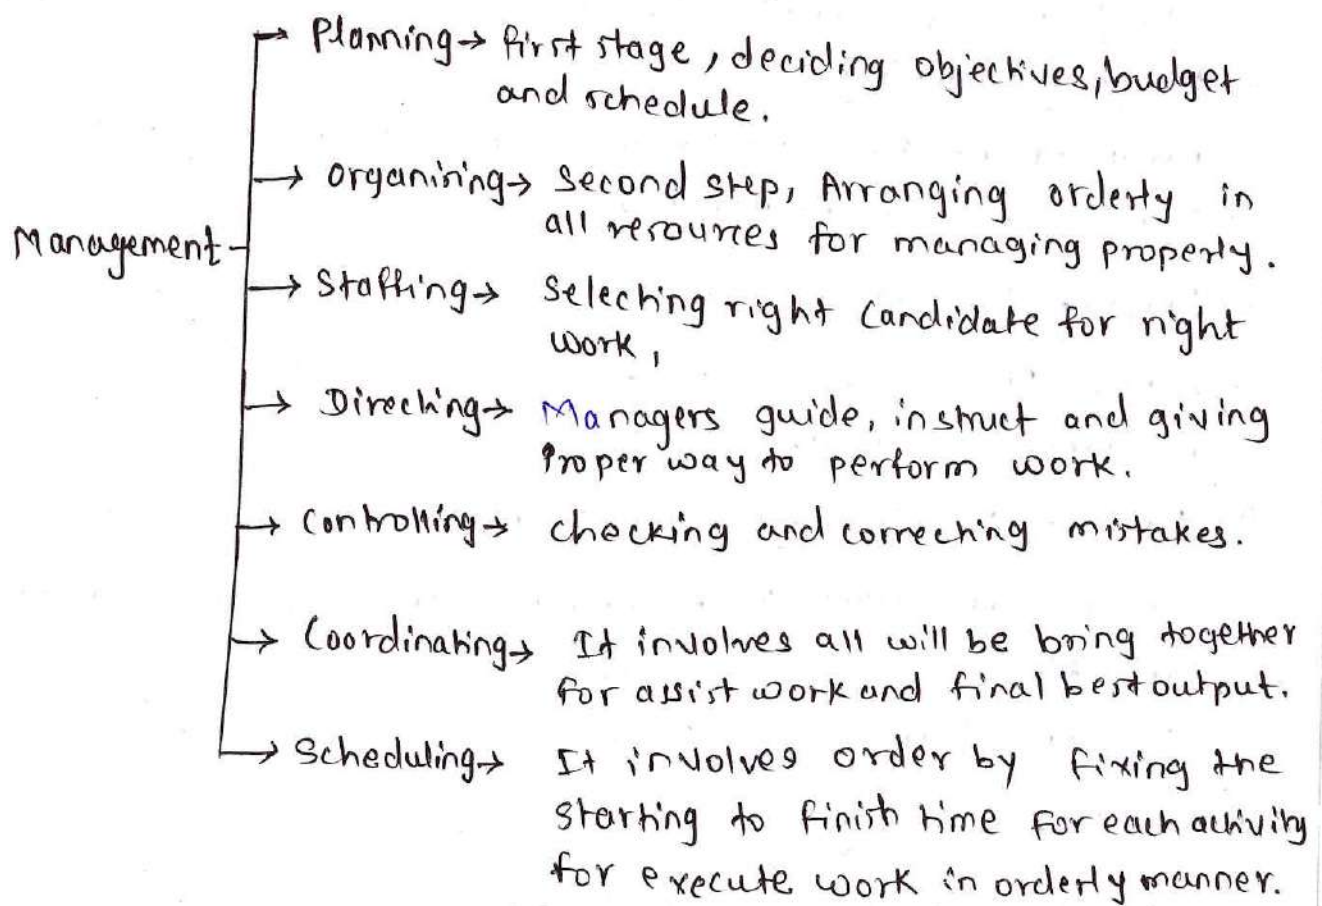 Planning → first stage, deciding objectives, budget
and schedule.
Organising → Second step, Arranging orderly in
all resources for managing properly.
Management
Staffing → Selecting right candidate for right
work,
Directing → Managers guide, instruct and giving
Proper way to perform work.
Controlling → checking and correcting mistakes.
Coordinating → It involves all will be bring together
for assist work and final best output.
Scheduling → It involves order by fixing the
starting to finish time for each activity
for execute work in orderly manner.